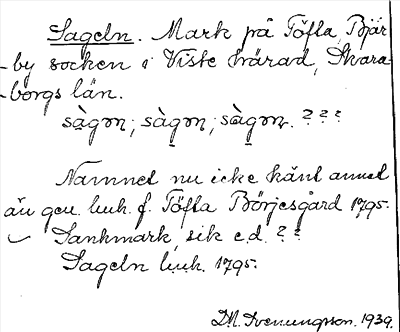 Sageln. Mark på Töfla, Bjär-
by socken i Viste härad, Skara-
borgs län.
sàgəɲ; sàgəɲ; sàgəɲ. ???
Namnet nu icke känt annat
än gen. luh. f. Töfla Börjesgård 1795.
Sankmark, sik e.d. ??
Sageln luuh. 1795.
D.M. Svenungsson. 1939.